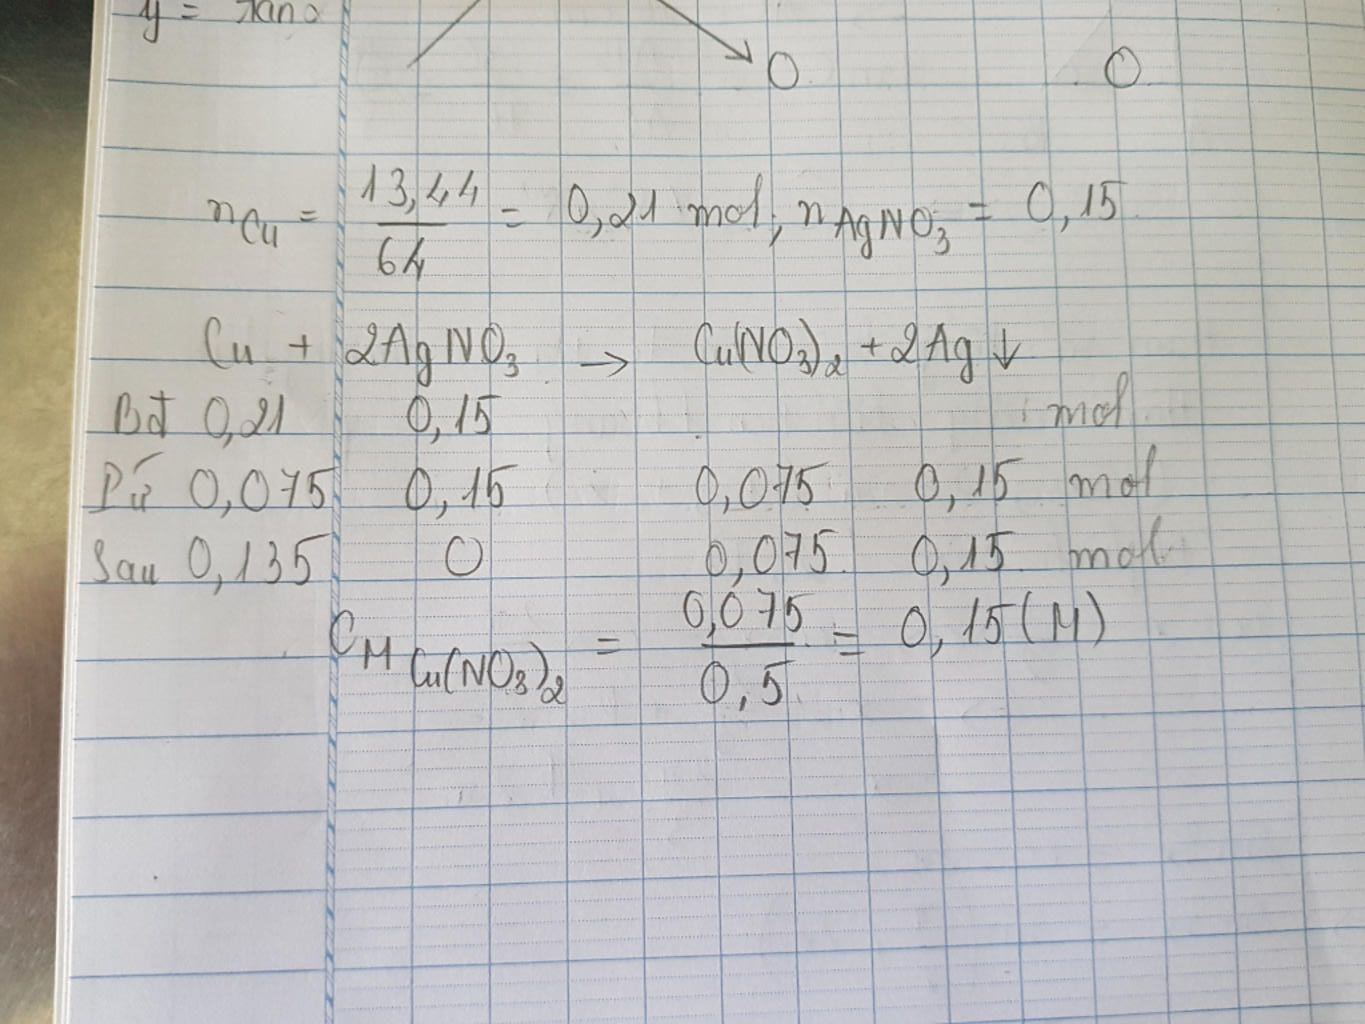 y =
0 0
nCu = 13,44/64 = 0,21 mol, nAgNO3 = 0,15
Cu + 2AgNO3 → Cu(NO3)2 + 2Ag↓
Bđ 0,21 0,15 mol
Pứ 0,075 0,15 0,075 0,15 mol
Sau 0,135 0 0,075 0,15 mol
CM Cu(NO3)2 = 0,075/0,5 = 0,15(M)